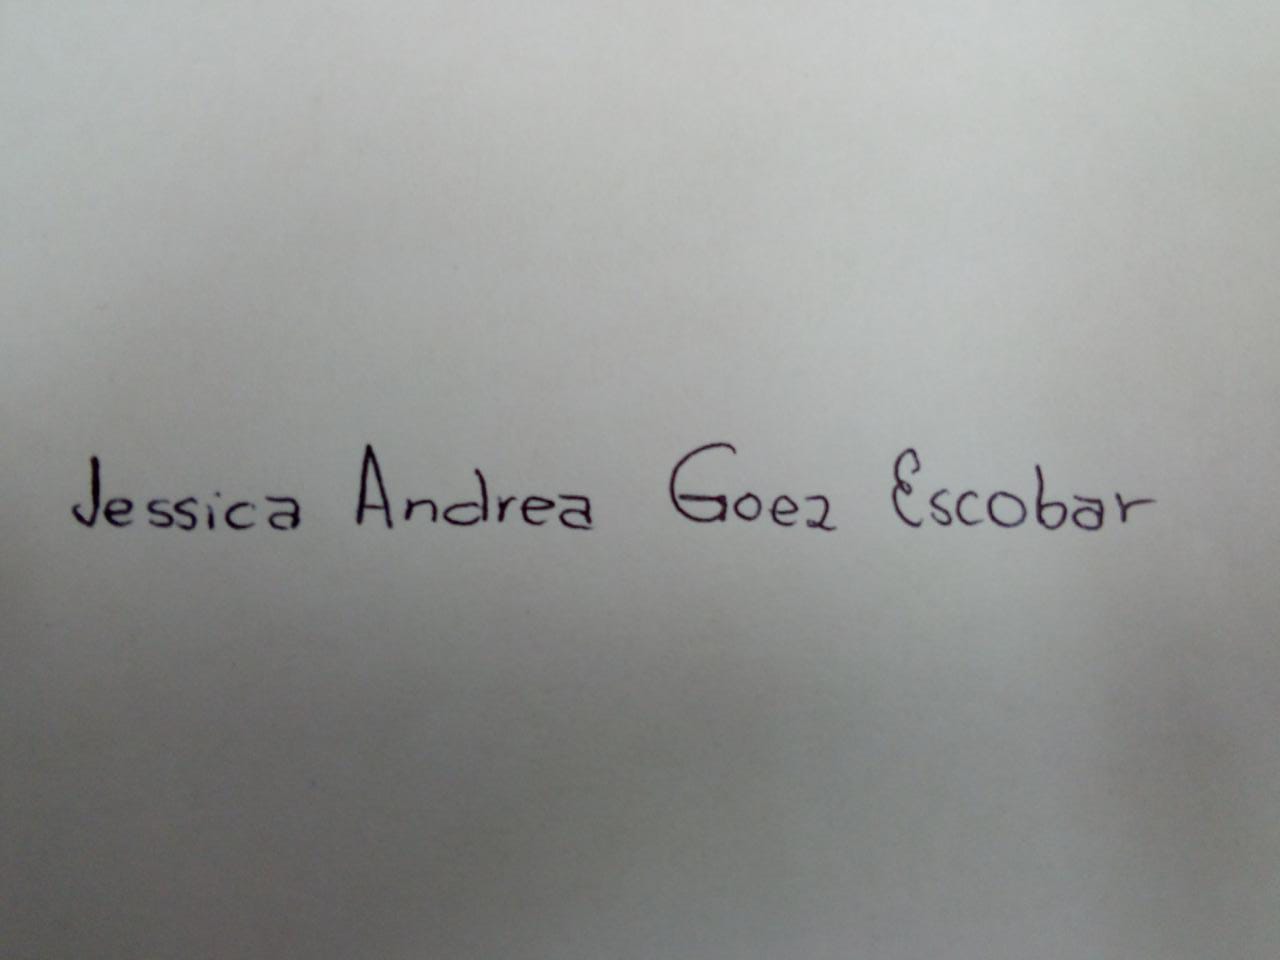 Jessica Andrea Goez Escobar